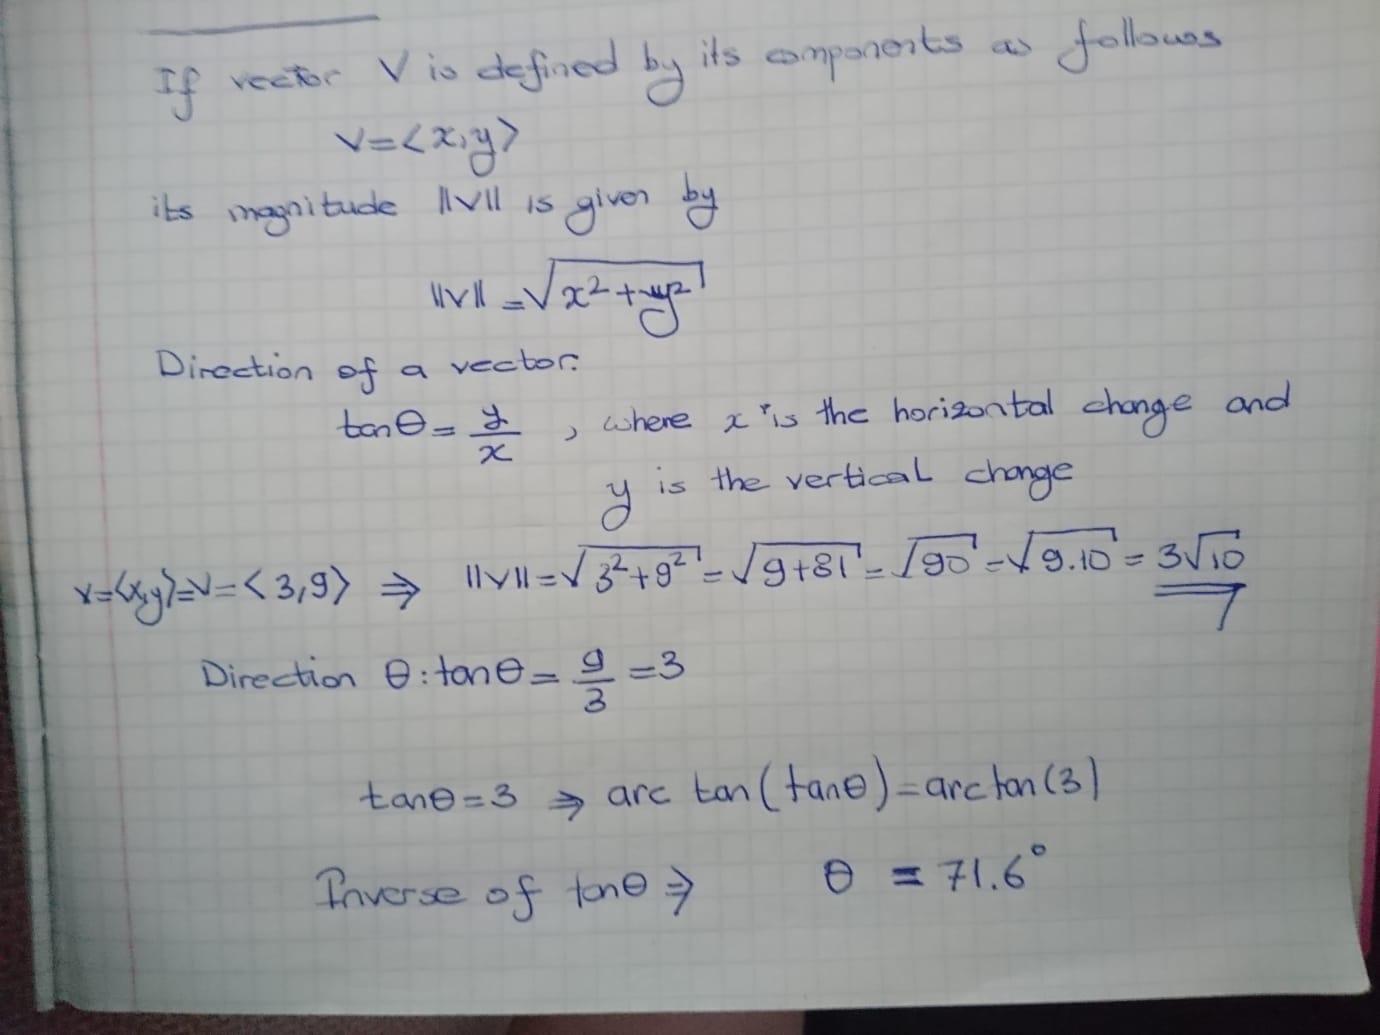 If vector V is defined by its components as follows
V=<x,y>
its magnitude ||V|| is given by
||V|| = √x²+y²
Direction of a vector:
tanθ = y/x , where x is the horizontal change and
y is the vertical change
V=<x,y>=V=<3,9> ⇒ ||V||=√3²+9² = √9+81 = √90 = √9.10 = 3√10
Direction θ: tanθ = 9/3 = 3
tanθ=3 ⇒ arc tan(tanθ)=arctan(3)
Inverse of tanθ ⇒ θ = 71.6°